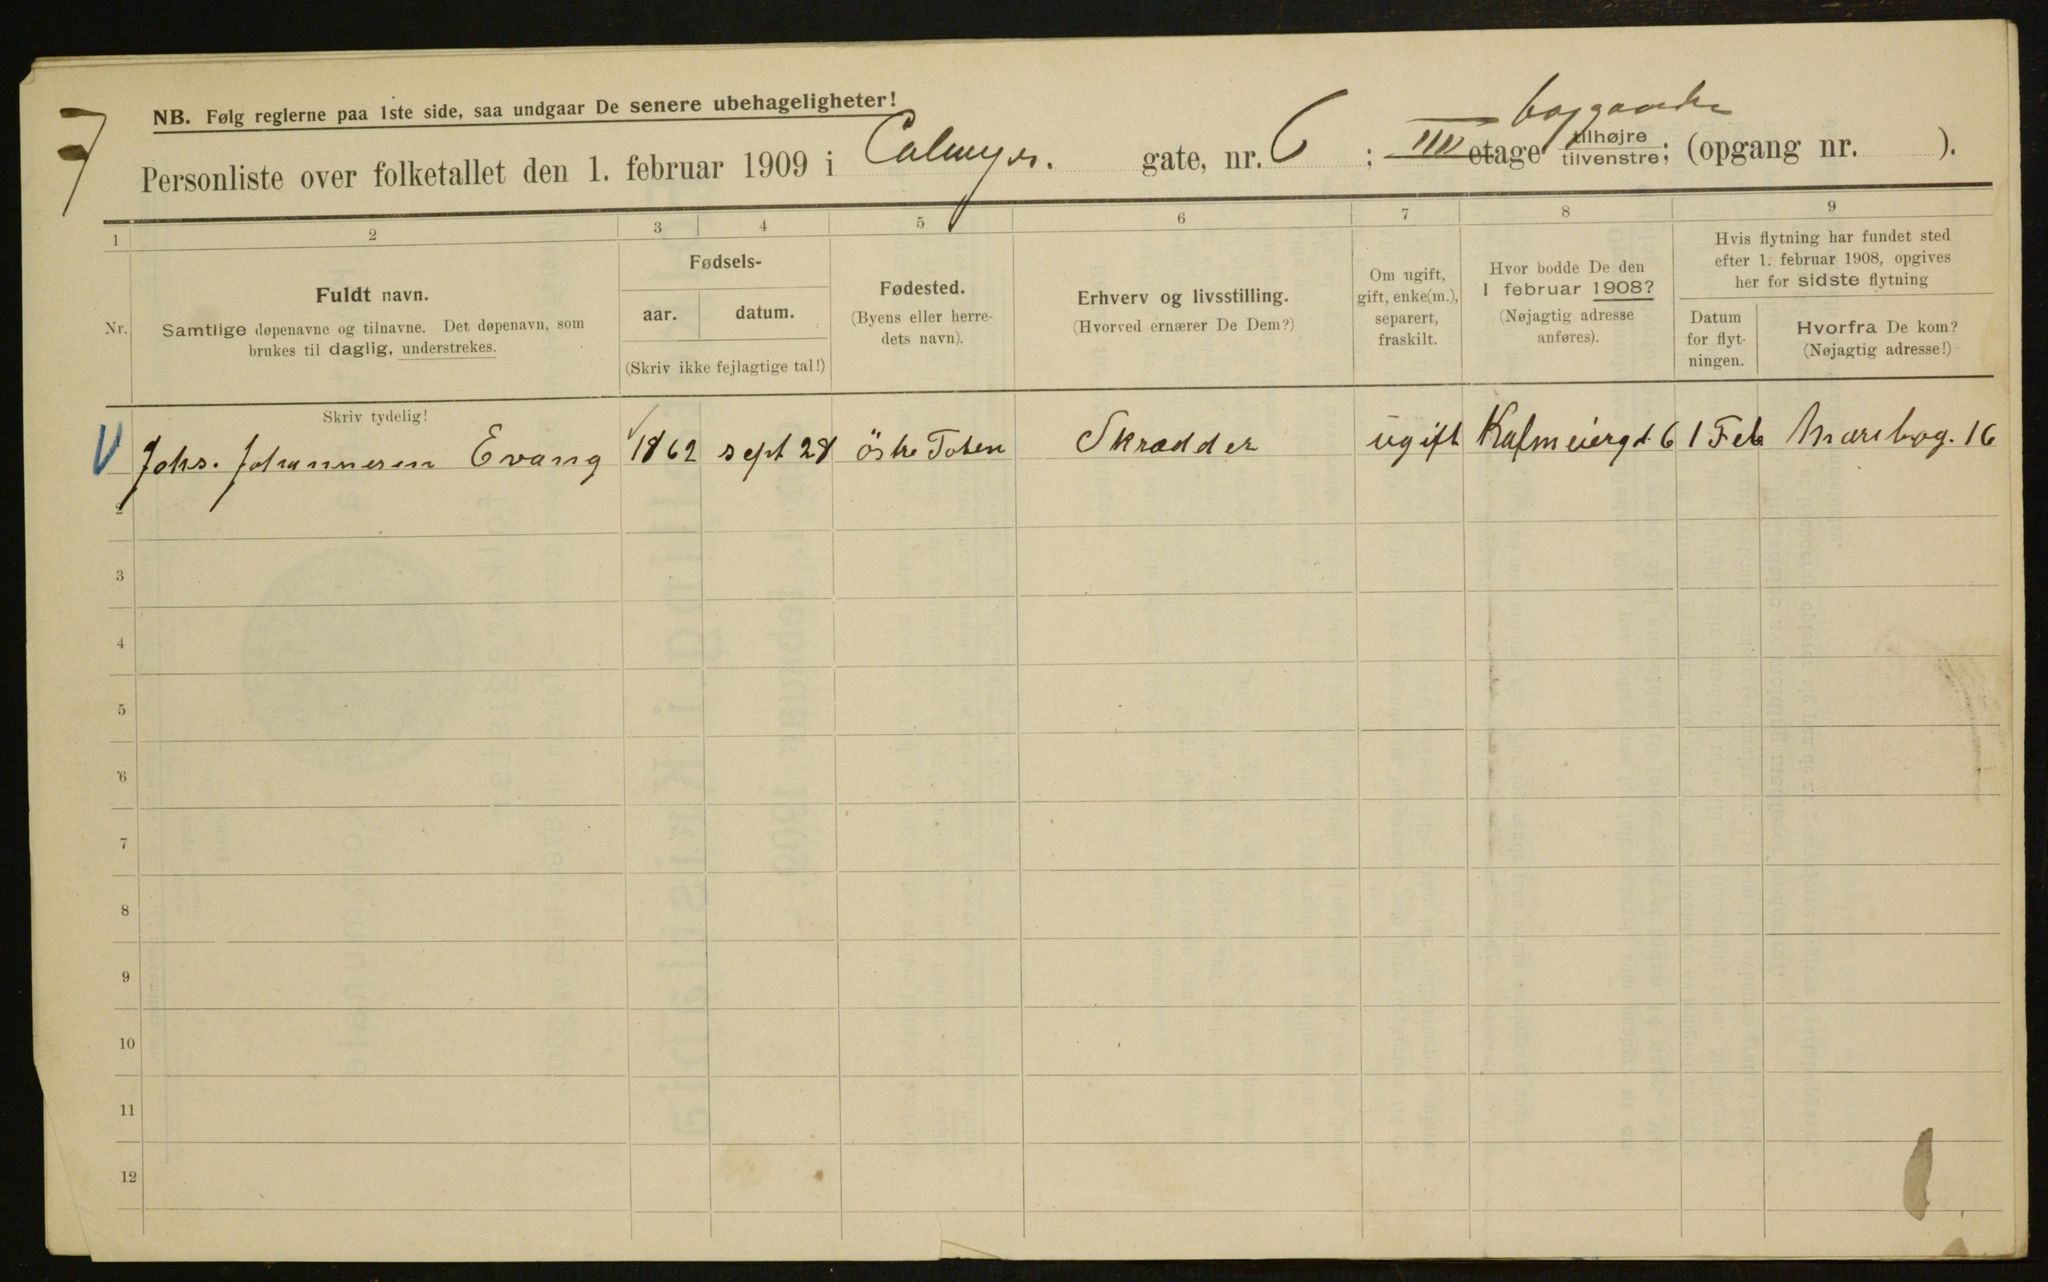 NB. Følg reglerne paa 1ste side, saa undgaar De senere ubehageligheter!
Personliste over folketallet den 1. februar 1909 i Calmyes. gate, nr. 6 ; IIII etage tilhøjre tilvenstre; (opgang nr. ).
1 2 3 4 5 6 7 8 9
Nr.
Fuldt navn.
Samtlige døpenavne og tilnavne. Det døpenavn, som
brukes til daglig, understrekes.
Fødsels-
aar. datum.
(Skriv ikke fejlagtige tal!)
Fødested.
(Byens eller herre-
dets navn).
Erhverv og livsstilling.
(Hvorved ernærer De Dem?)
Om ugift,
gift, enke(m.),
separert,
fraskilt.
Hvor bodde De den
1 februar 1908?
(Nøjagtig adresse
anføres).
Hvis flytning har fundet sted
efter 1. februar 1908, opgives
her for sidste flytning
Datum
for flyt-
ningen.
Hvorfra De kom?
(Nøjagtig adresse!)
Skriv tydelig!
Johs. Johannesen Evang 1862 sept 28 östre Toten Skrædder ugift Kalmeiergd. 6 1 Feb 16
2
3
4
5
6
7
8
9
10
11
12